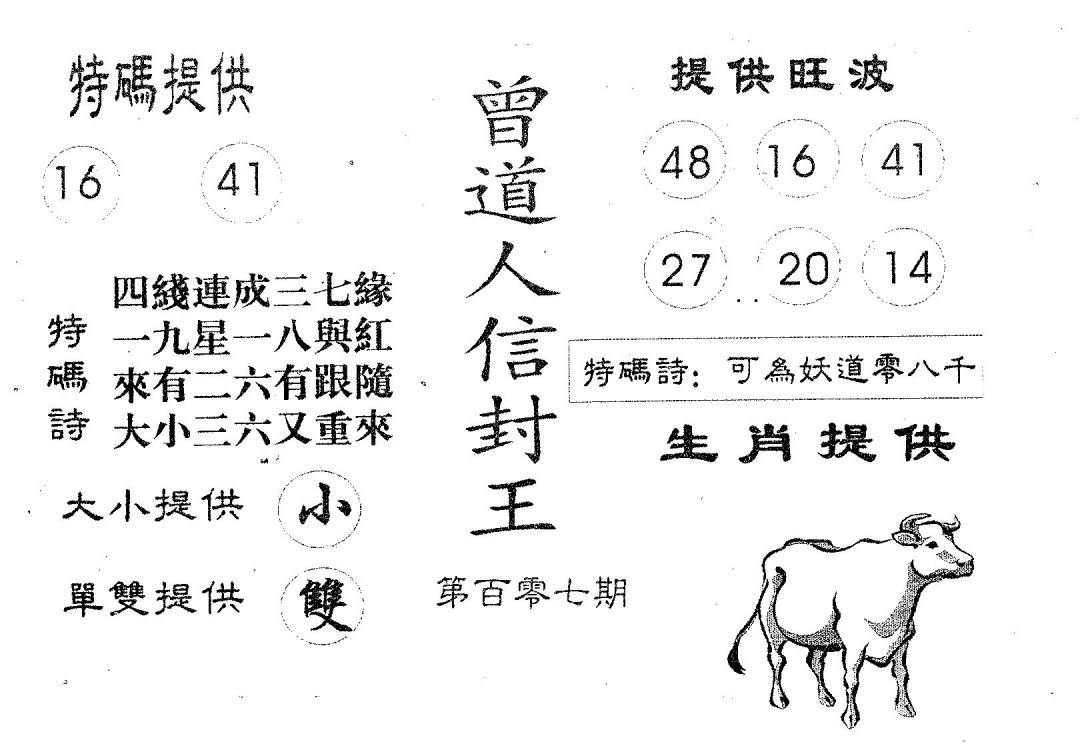 特碼提供
16 41
特碼詩
四綫連成三七緣
一九星一八與紅
來有二六有跟隨
大小三六又重來
大小提供 小
單雙提供 雙
曾道人信封王
第百零七期
提供旺波
48 16 41
27 20 14
特碼詩：可為妖道零八千
生肖提供